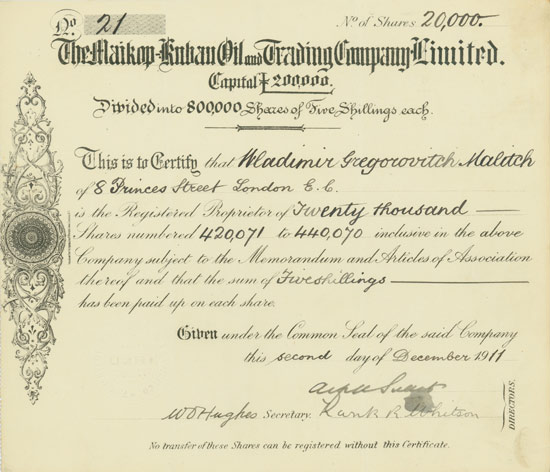 No. 21 No. of Shares 20,000.
The Maikop-Kuban Oil and Trading Company Limited.
Capital £200,000.
Divided into 800,000 Shares of Five Shillings each.
This is to Certify that Wladimir Gregorovitch Malitch
of 8 Princes Street London E.C.
is the Registered Proprietor of Twenty thousand
Shares numbered 420,071 to 440,070 inclusive in the above
Company subject to the Memorandum and Articles of Association
thereof and that the sum of Five shillings
has been paid up on each share.
Given under the Common Seal of the said Company
this second day of December 1911
W D Hughes Secretary. Frank R. Whitson
DIRECTORS.
No transfer of these Shares can be registered without this Certificate.